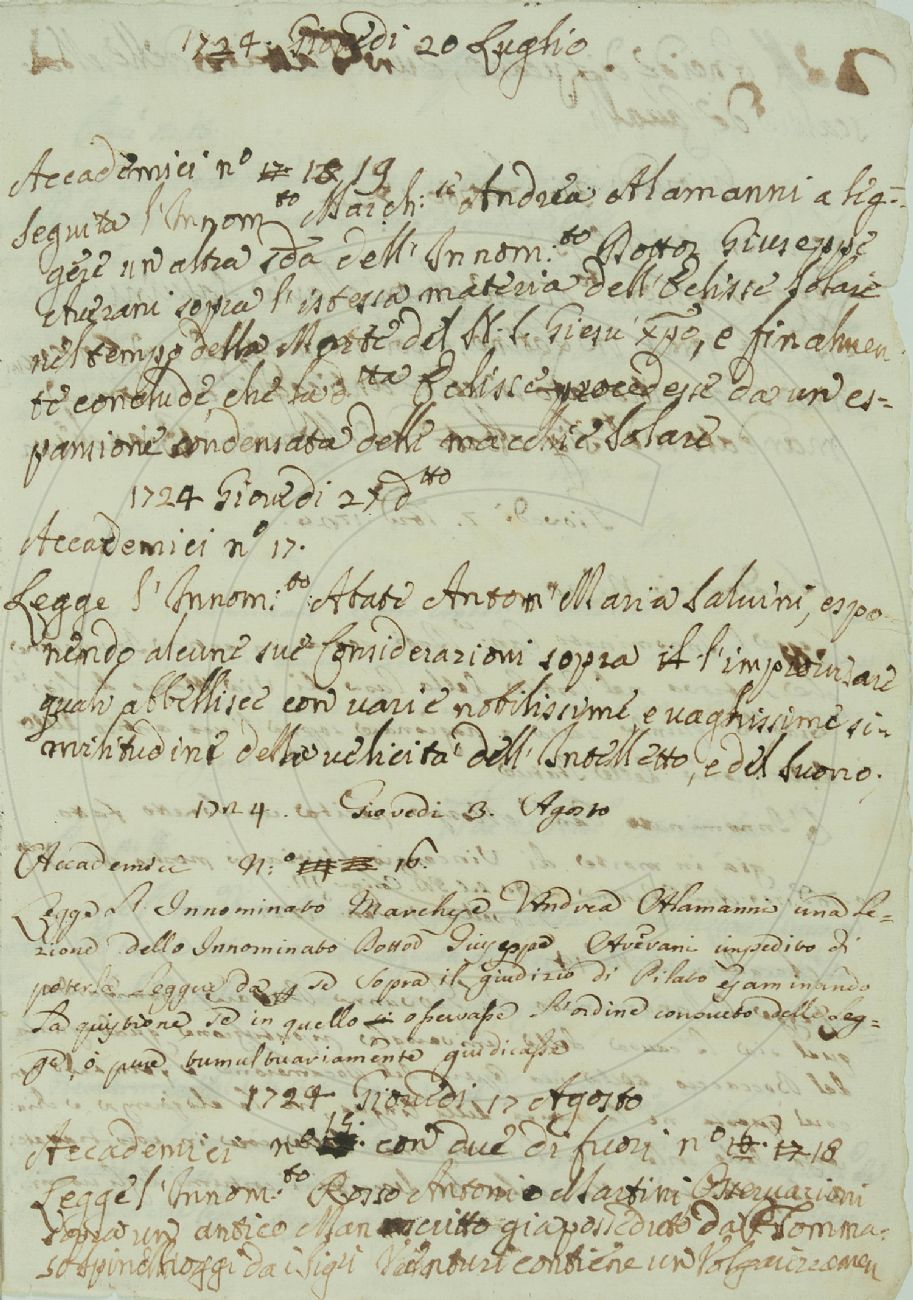 1724. Giovedi 20 Luglio
Accademici n.º 17 18 19
Seguita l'Innom.to March:se Andrea Alamanni a leg-
gere un altra dell'Innom:to Dottor Giuseppe
Averani sopra l'istessa materia dell'Eclisse Solare
nel tempo della Morte del N. S. Giesù Xpo, e finalmen-
te conclude, che tal Eclisse procedesse da un es-
pansione condensata delle macchie Solare
1724 Giovedi 27 d.tto
Accademici n.º 17.
Legge l'Innom:to Abate Anton Maria Salvini, espo-
nendo alcune sue Considerazioni sopra il l'improvisare
quali abbellisce con varie nobilissime, e vaghissime si-
militudine della velicità dell'Intelletto, e del Suono.
1724. Giovedi 3. Agosto
Accademici N:º 16.
Legge l'Innominato Marchese Andrea Alamanni una Le-
zione dello Innominato Dottor Giuseppe Averani impedito di
poterla Leggere da se Sopra il giudizio di Pilato esaminando
La quistione se in quello si osservasse l'ordine consueto delle Leg-
ge, ò pure tumultuariamente giudicasse
1724 Giovedi 17 Agosto
Accademici nº 15. con due di fuori nº 16. 17 18
Legge l'Innom:to Rosso Antonio Martini Osservazioni
sopra un antico Manoscritto già posseduto da Tomma-
so Spinelli oggi da i Sigri Venturi contiene un Volgarizzamen